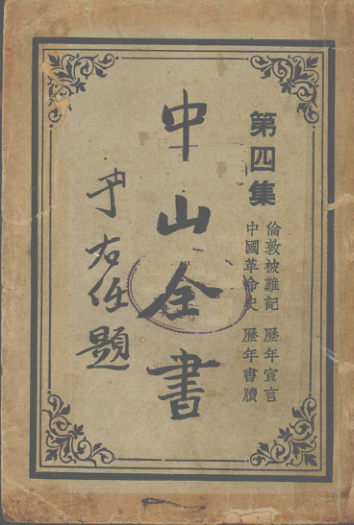 第四集
倫敦被難記 歷年宣言
中國革命史 歷年書牘
中山全書
于右任題